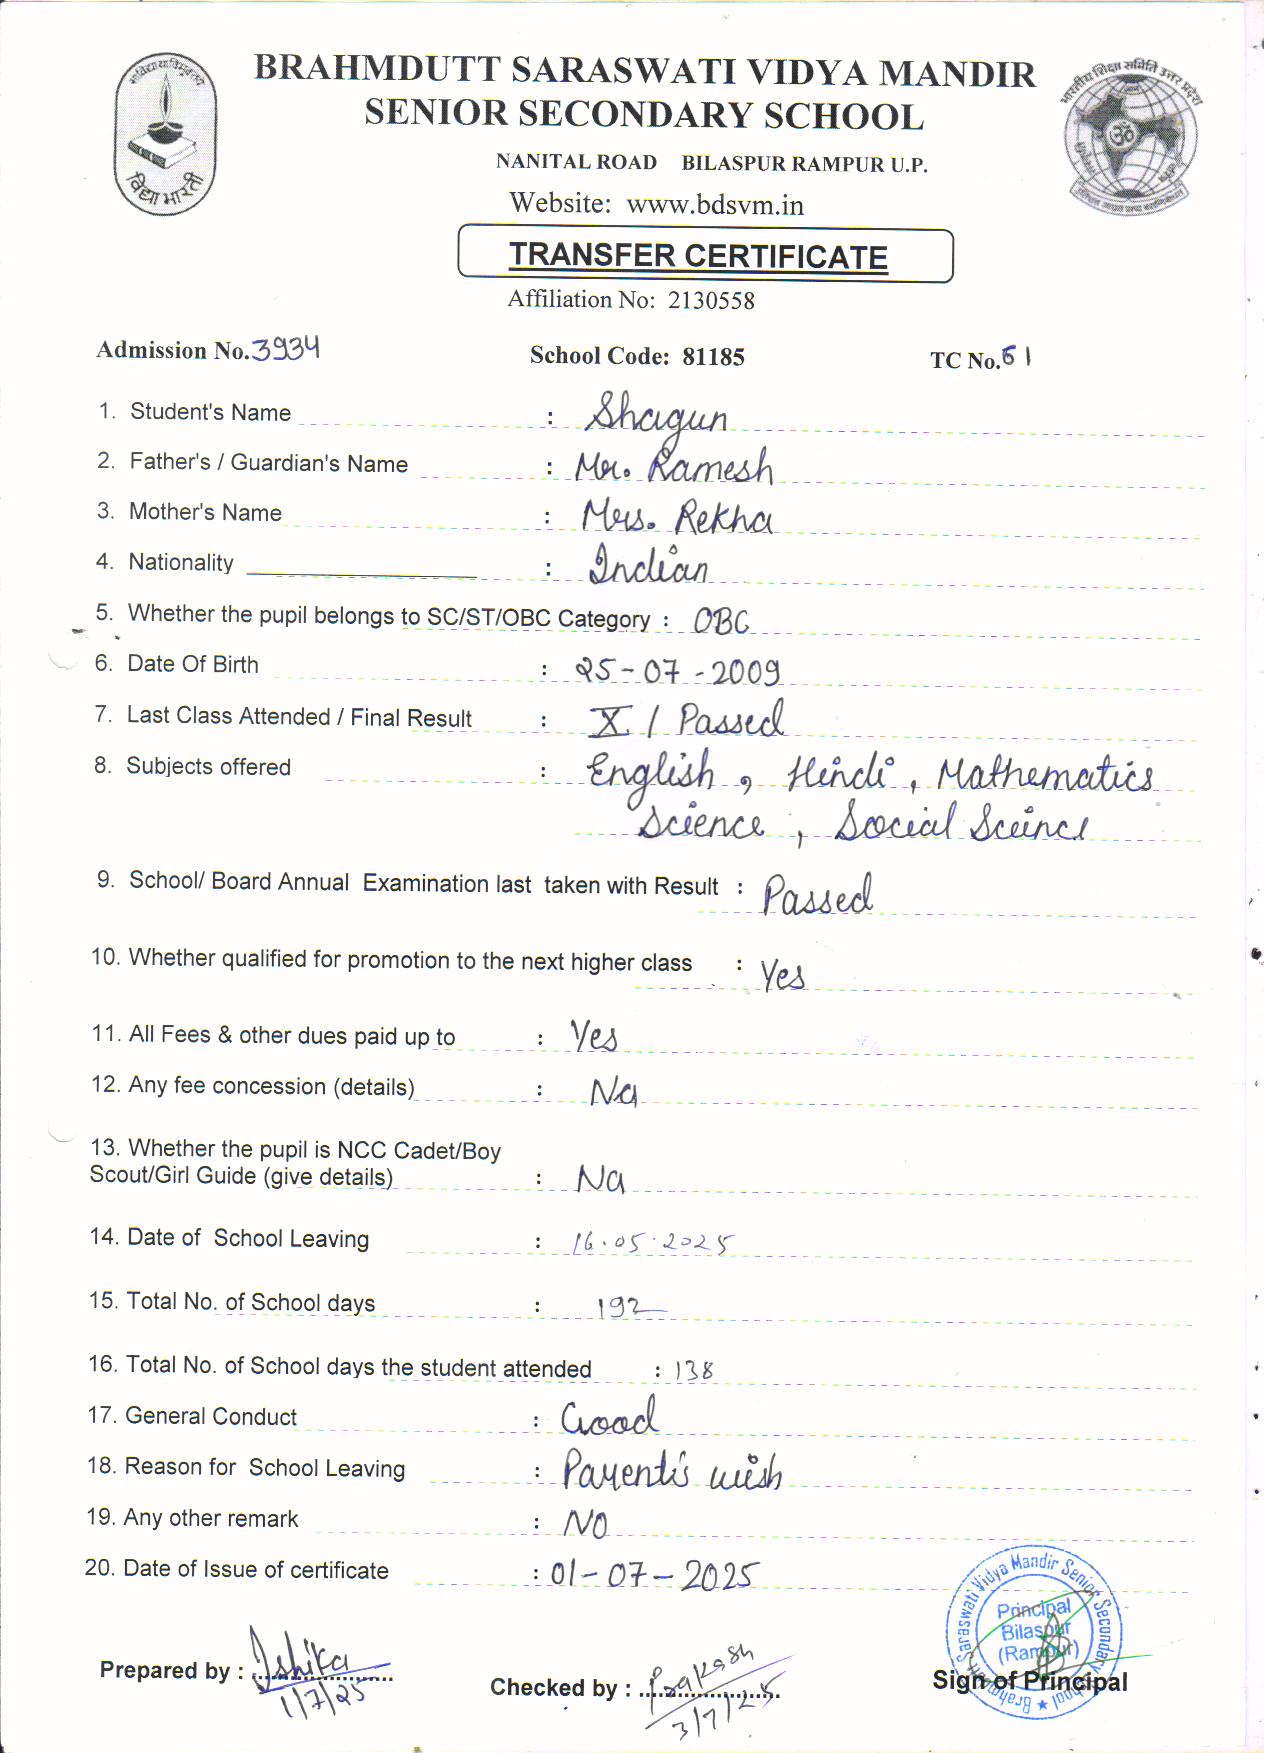 BRAHMDUTT SARASWATI VIDYA MANDIR
SENIOR SECONDARY SCHOOL
NANITAL ROAD BILASPUR RAMPUR U.P.
Website: www.bdsvm.in
विद्या भारती
भारतीय शिक्षा समिति उत्तर प्रदेश
TRANSFER CERTIFICATE
Affiliation No: 2130558
Admission No. 3934 School Code: 81185 TC No. 61
1. Student's Name : Shagun
2. Father's / Guardian's Name : Mr. Ramesh
3. Mother's Name : Mrs. Rekha
4. Nationality : Indian
5. Whether the pupil belongs to SC/ST/OBC Category : OBC
6. Date Of Birth : 25-07-2009
7. Last Class Attended / Final Result : X / Passed
8. Subjects offered : English, Hindi, Mathematics
Science, Social Scince
9. School/ Board Annual Examination last taken with Result : Passed
10. Whether qualified for promotion to the next higher class : Yes
11. All Fees & other dues paid up to : Yes
12. Any fee concession (details) : Na
13. Whether the pupil is NCC Cadet/Boy
Scout/Girl Guide (give details) : Na
14. Date of School Leaving : 16.05.2025
15. Total No. of School days : 192
16. Total No. of School days the student attended : 138
17. General Conduct : Good
18. Reason for School Leaving : Parent's wish
19. Any other remark : NO
20. Date of Issue of certificate : 01-07-2025
Prepared by : Ishika
1/7/25
Checked by : Prakash
3/7/25
Brahmdutt Saraswati Vidya Mandir Senior Secondary School
Principal
Bilaspur
(Rampur)
Sign of Principal